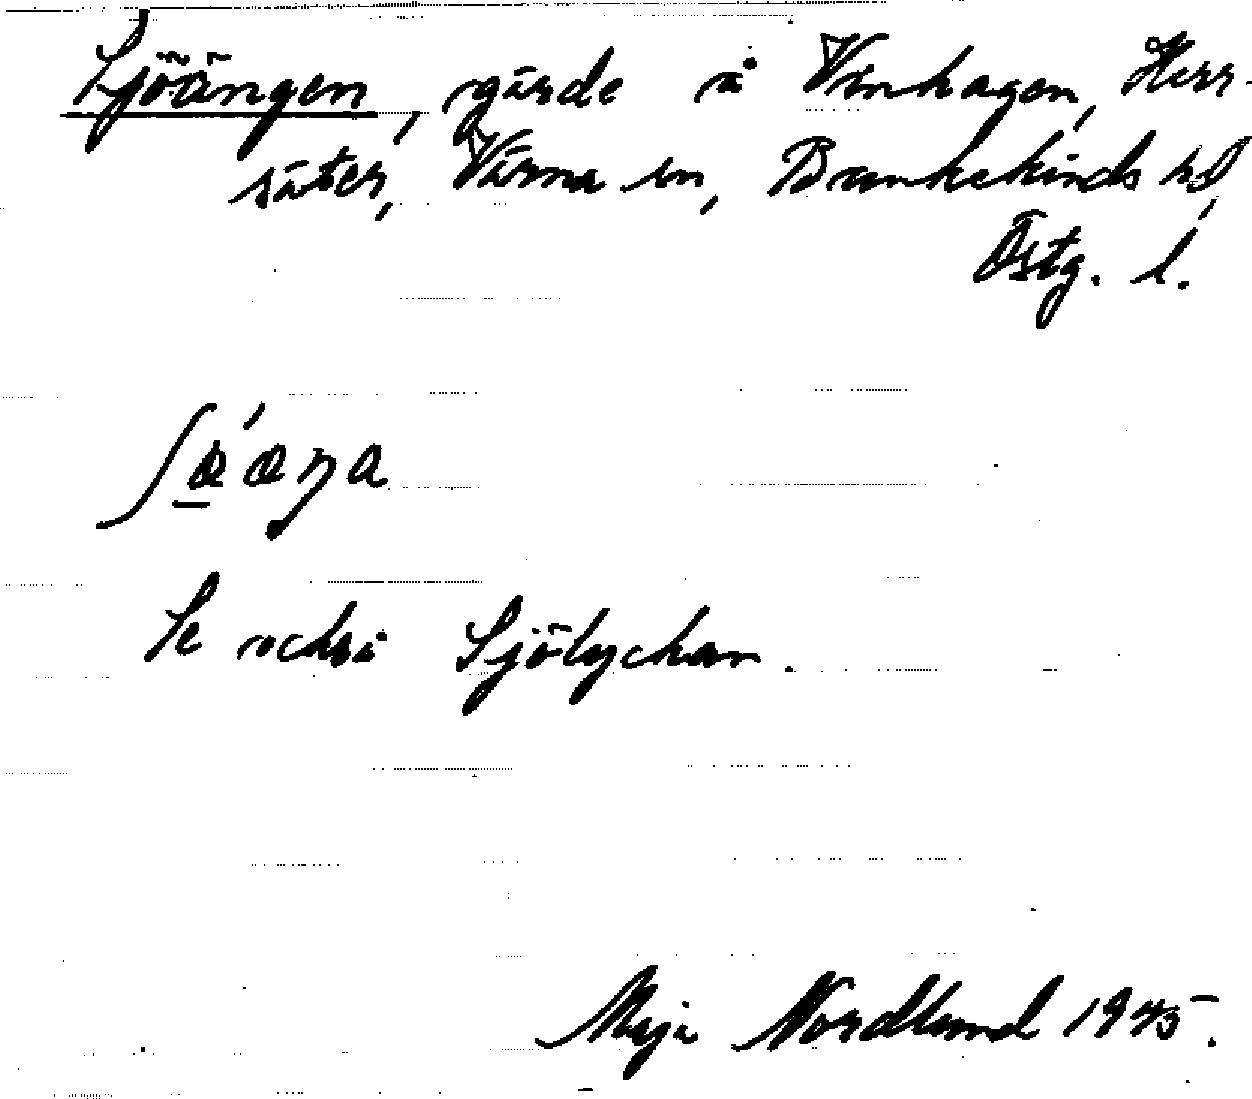 Sjöängen, gärde å Vinhagen, Herr-
säter, Värna sn, Bankekinds hd,
Östg. l.
ʃœ̱'æŋa
Se också Sjölyckan.
Maja Nordlund 1945.